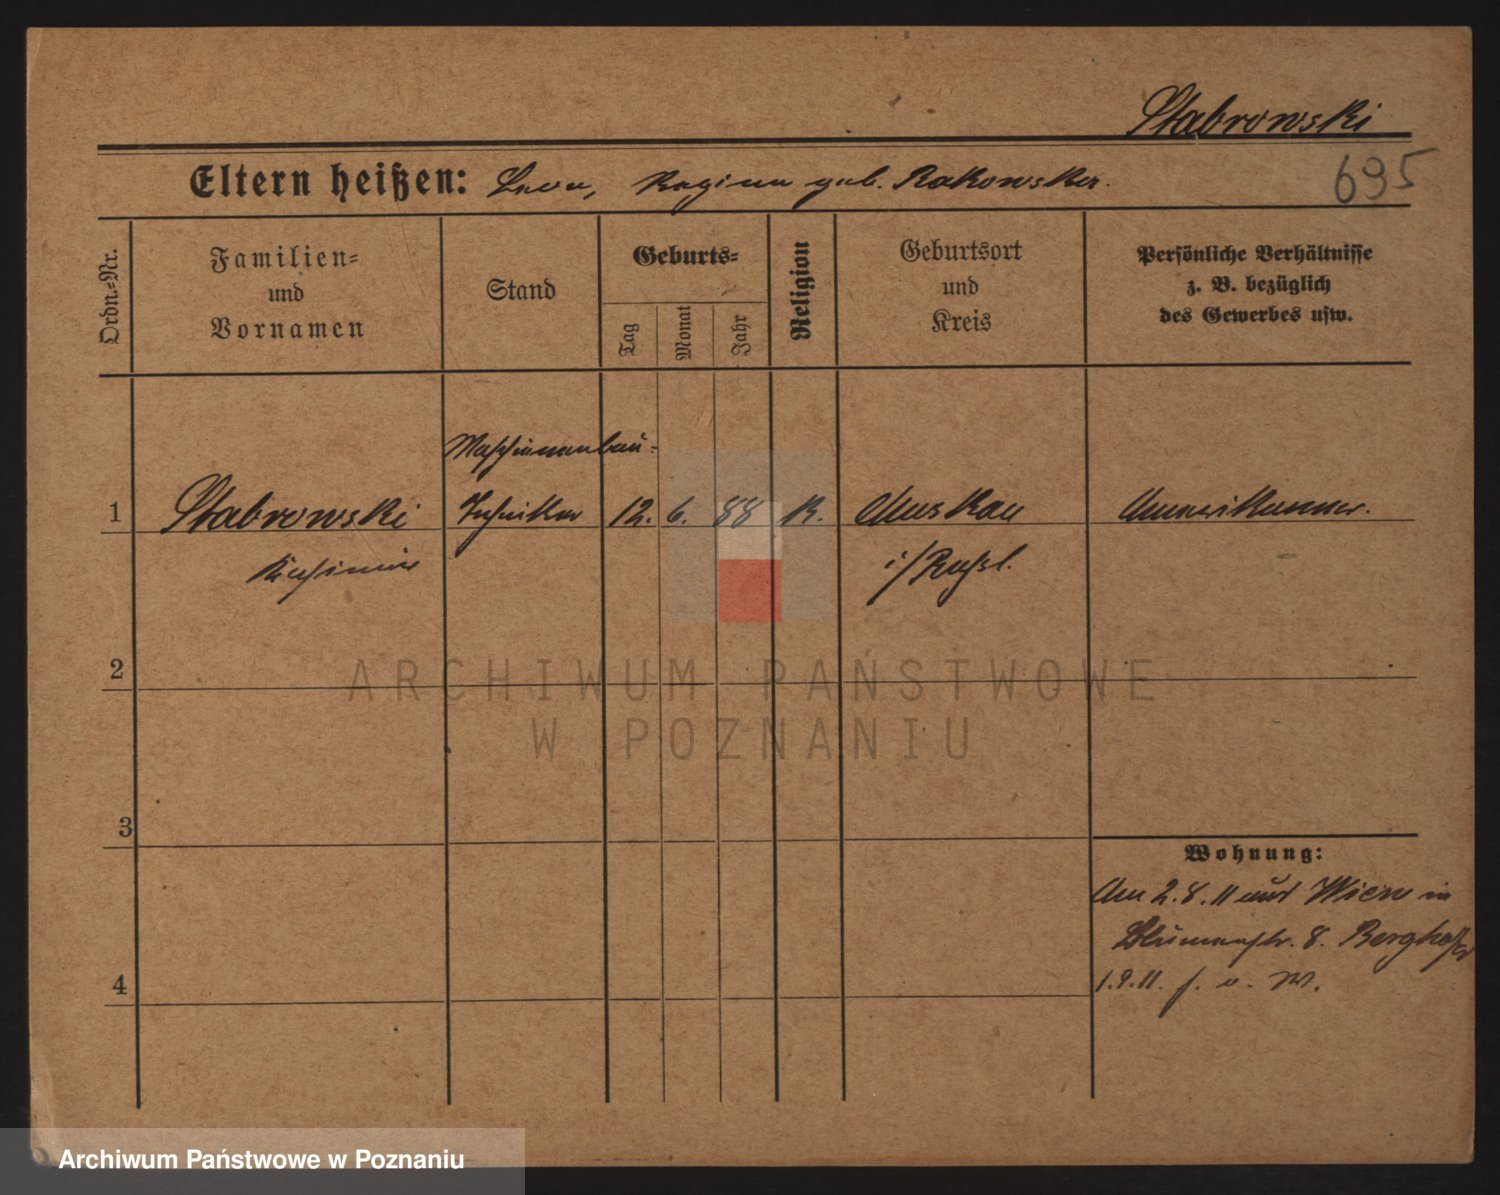 Stabrowski
695
Eltern heißen: Leon, Regina geb. Rakowska.
Ordn.-Nr.
Familien-
und
Vornamen
Stand
Geburts-
Tag
Monat
Jahr
Religion
Geburtsort
und
Kreis
Persönliche Verhältnisse
z. B. bezüglich
des Gewerbes usw.
Maschinenbau-
1 Stabrowski Techniker 12. 6. 88 K. Moskau Amerikaner.
Kasimir i/Russl.
2
3
4
Wohnung:
Am 2.8.11 aus Wien in
Blumenstr. 8.
1.9.11. f. o. W.
ARCHIWUM PAŃSTWOWE
W POZNANIU
Archiwum Państwowe w Poznaniu